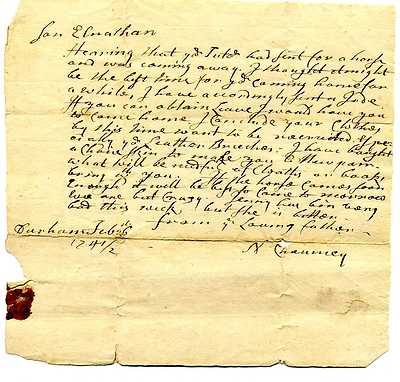 Son Elnathan
Hearing that yr Tutor had sent for a horse
and was coming away. I thought it might
be the best time for yr coming home for
a while, I have accordingly sent a Jade
If you can obtain leave I would have you
to come home I conclude your Clothes
by this time want to be recruited
yr Leather Breeches. I have bought
a to make you a New pair
what will be needful of Cloaths or books
bring with you. If the horse comes soon
Enough it will be best to come to morrow
we are but Crazy. Jenny has bin very
bad this week, but she is better
from yr Loving father
Durham Feb 26
1741/2
N Chauncey